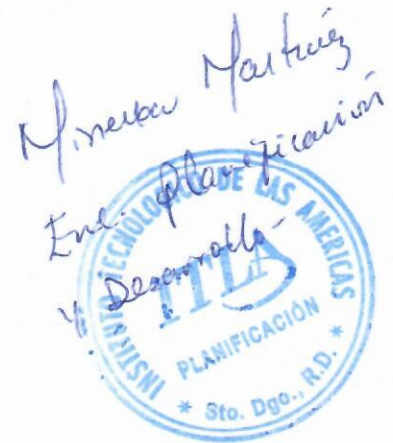 Minerva Martínez
Enc. Planificación
y Desarrollo
INSTITUTO TECNOLOGICO DE LAS AMERICAS
ITLA
PLANIFICACIÓN
* Sto. Dgo., R.D. *